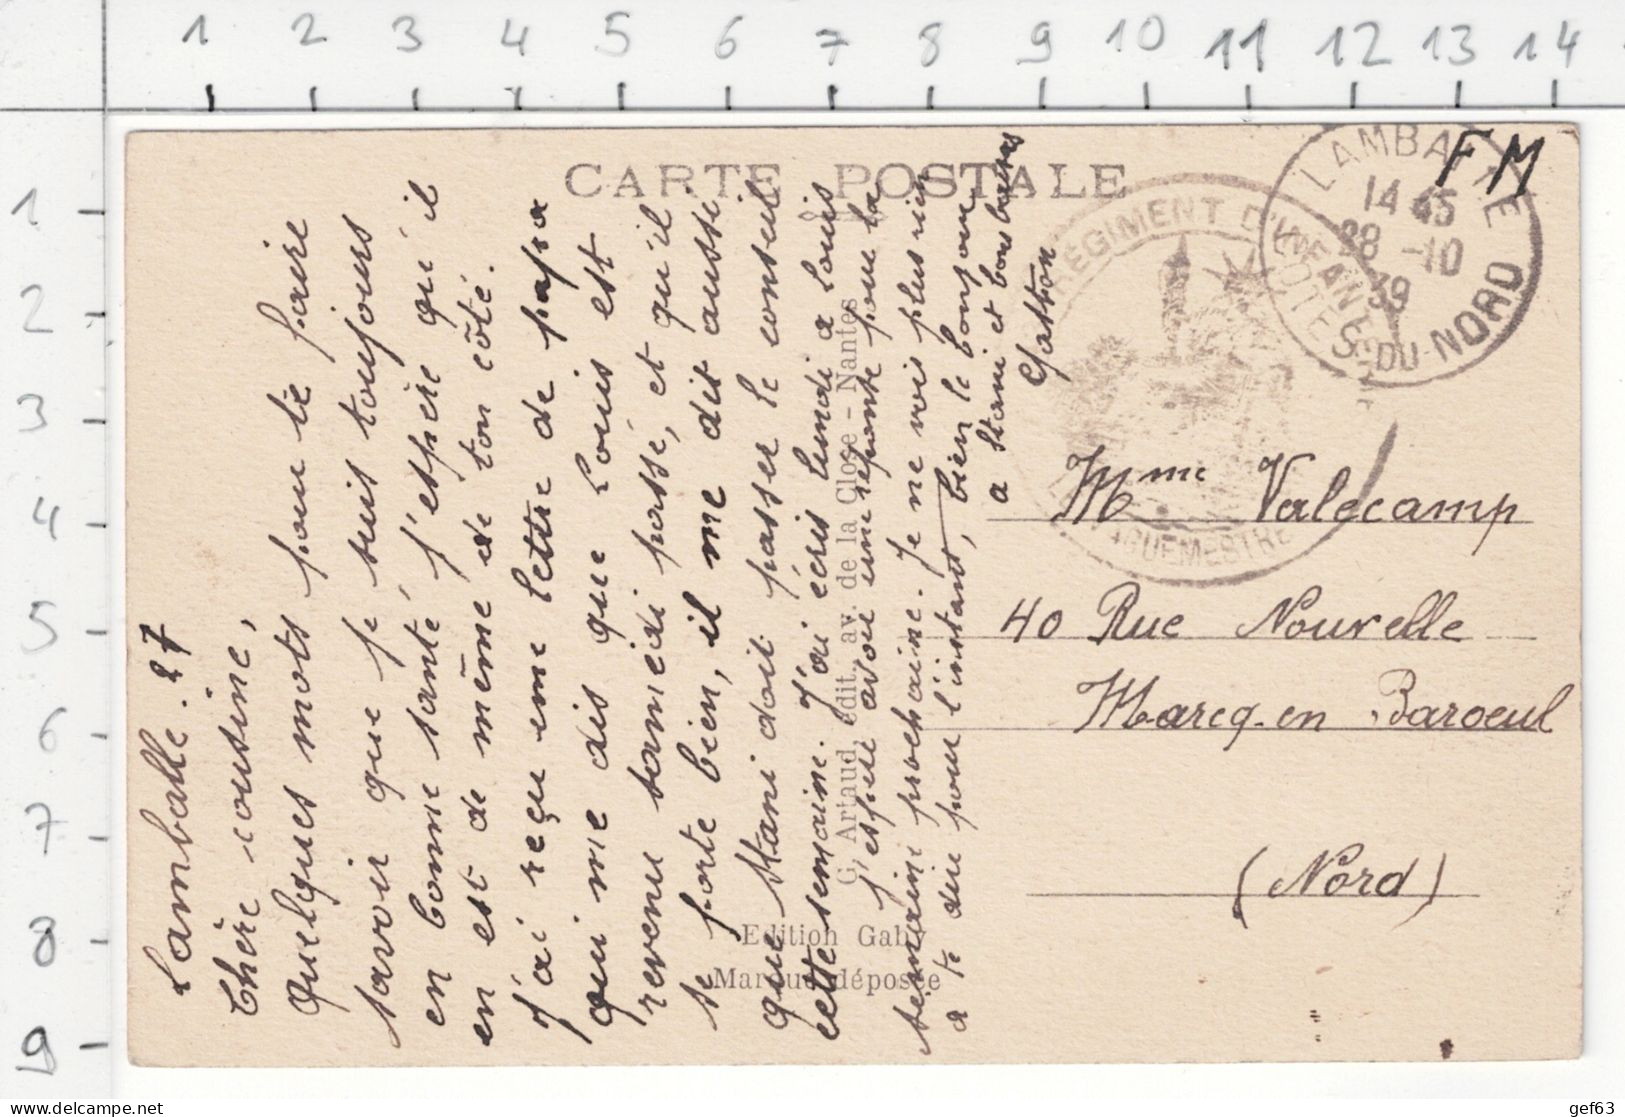 1 2 3 4 5 6 7 8 9 10 11 12 13 14
1
2
3
4
5
6
7
8
9
CARTE POSTALE
FM
LAMBALLE
14 45
28 -10
39
CÔTES-DU-NORD
RÉGIMENT D'INFANTERIE
VAGUEMESTRE
Lamballe. 27
Chère cousine,
Quelques mots pour te faire
savoir que je suis toujours
en bonne santé, j'espère qu'il
en est de même de ton côté.
J'ai reçu une lettre de papa
qui me dis que Louis est
revenu samedi passé, et qu'il
se porte bien, il me dit aussi
que Stani doit passer le conseil
cette semaine. J'ai écris lundi a Louis
j'espère avoir une réponse pour la
semaine prochaine. Je ne vois plus rien
a te dire pour l'instant, bien le bonjour
a Stani et bons baisers
Gaston
G. Artaud, édit., av. de la Close - Nantes
Edition Gaby
Marque déposée
Mme Valecamp
40 Rue Nouvelle
Marcq-en Baroeul
(Nord)
gef63